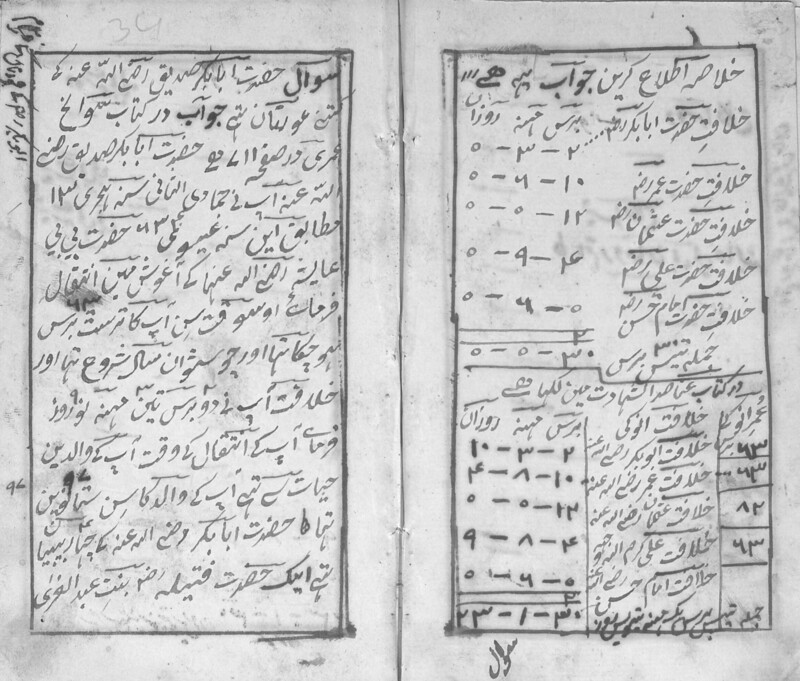 خلاصہ اطلاع کرین جواب یہہ ھے
خلافتِ حضرت ابابکررضہ برس مہنہ روزان
۲ — ۳ — ۰
خلافتِ حضرت عمر رضہ ۱۰ — ۶ — ۰
خلافتِ حضرت عثمان رضہ ۱۲ — ۰ — ۰
خلافتِ حضرت علی رضہ ۴ — ۹ — ۰
خلافتِ حضرت امام حسن رضہ ۰ — ۶ — ۰
جملہ تیس برس ۳۰ — ۰ — ۰
در کتاب عناصر الشہادت مین لکھا ھے
عمر انوکی خلافت انوکی برس مہنہ روزان
۶۳ خلافت ابوبکر رضی اللہ عنہ ۲ — ۳ — ۱۰
۶۳ خلافت عمر رضی اللہ عنہ ۱۰ — ۸ — ۴
۸۲ خلافت عثمان رضی اللہ عنہ ۱۲ — ۰ — ۰
۶۳ خلافت علی کرم اللہ وجہہ ۴ — ۸ — ۹
خلافت امام حسن رضی ۰ — ۶ — ۰
جملہ تیس برس یک مہنہ تیئیس روز ۳۰ — ۱ — ۲۳
سوال
34
سوال حضرت ابابکر صدیق رضی اللہ عنہ کے
کتنے عورتان تھے جواب در کتاب سوانح
عمری در صفح ۱۱۷ ھے حضرت ابابکر صدیق رضی
اللہ عنہ آپ نے جمادی الثانی سنہ ہجری ۱۳
مطابق سنہ عیسوی ۶۳ حضرت بی بی
عایشہ رضی اللہ عنہا کے آغوش مین انتقال
فرمائے اوسوقت سِن آپ کا ترسٹ برس ۶۳
ہوچکا تہا اور چوسٹوان سال شروع تہا اور
خلافت آپ نے دو برس تین مہنہ نو روز
فرمائے آپ کے انتقال کے وقت آپ کے والدین
حیات سے تہے آپ کے والد کا سِن ستانوین ۹۷
تہا حضرت ابابکر رضی اللہ عنہ کے چہار بیبیان
تہے ایک حضرت قتیلہ رضہ بنت عبد العزی
۹۷